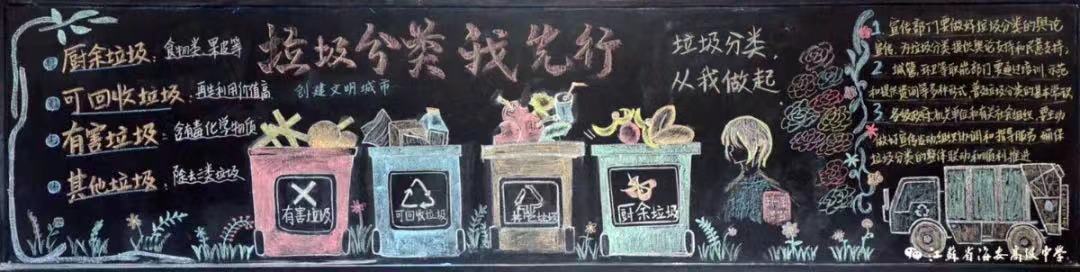 厨余垃圾：食物类 果皮等
可回收垃圾：再生利用价值高
有害垃圾：含有毒化学物质
其他垃圾：除去三类垃圾
垃圾分类 我先行
创建文明城市
垃圾分类，
从我做起
有害垃圾
可回收垃圾
其他垃圾
厨余垃圾
1. 宣传部门要做好垃圾分类的舆论
宣传，为垃圾分类提供舆论支持和民意支持；
2. 城管、环卫等职能部门要通过培训、示范
和提供咨询等多种方式，普及垃圾分类的基本常识
3. 各级政府机关单位和有关社会组织，要主动
做好宣传发动组织协调和指导服务，确保
垃圾分类的整体联动和顺利推进
江苏省海安高级中学